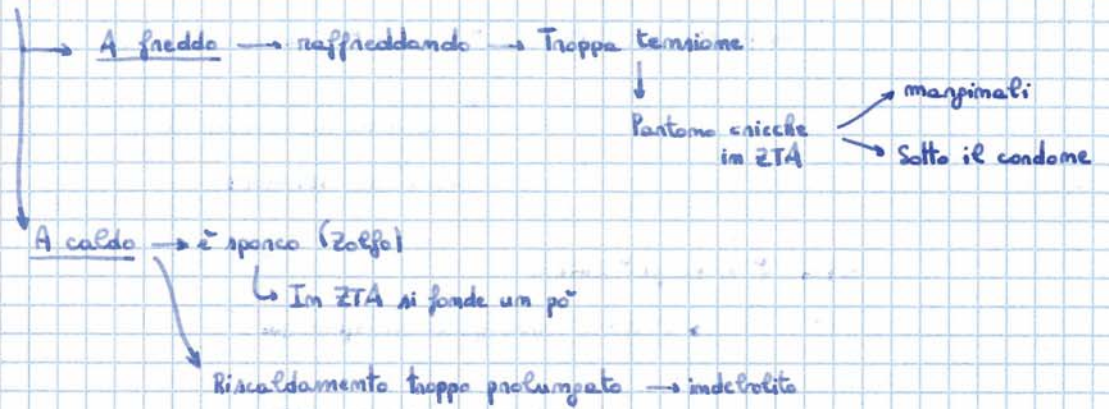 A freddo → raffreddando → Troppa tensione
↓
marginali
Partono cricche
in ZTA
Sotto il cordone
A caldo → è sporco (Zolfo)
↳ In ZTA si fonde un pò
Riscaldamento troppo prolungato → indebolito